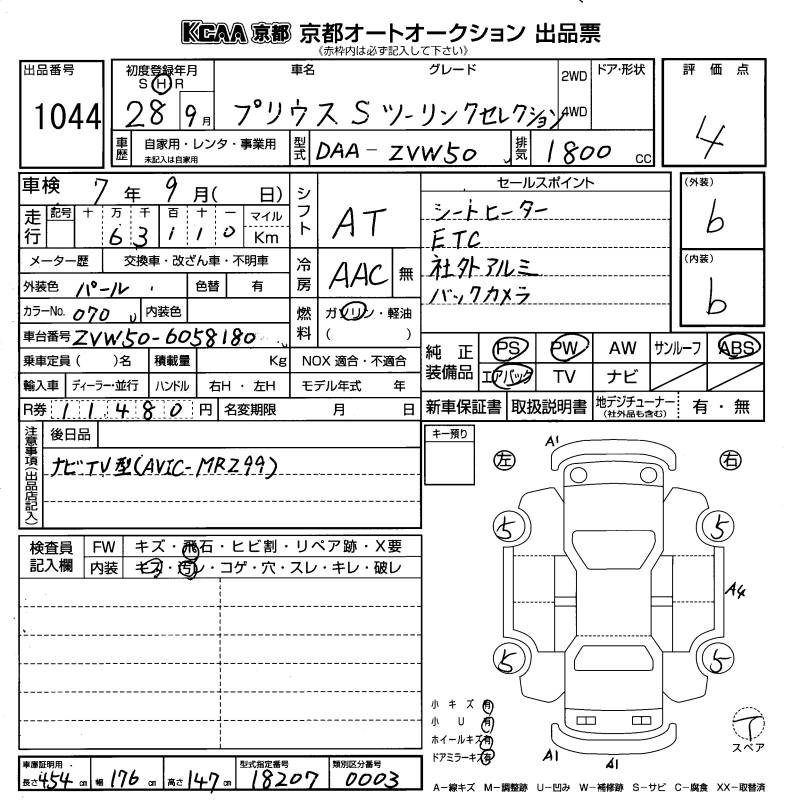 KCAA 京都 京都オートオークション 出品票
《赤枠内は必ず記入して下さい》
出品番号
1044
初度登録年月
S H R
28 9月
車名 グレード
プリウス S ツーリングセレクション
2WD
4WD
ドア・形状
評価点
4
車歴
自家用・レンタ・事業用
未記入は自家用
型式
DAA-ZVW50
排気
1800 cc
車検 7年 9月( 日)
走行
記号 十 万 千 百 十 一
6 3 1 1 0
マイル
Km
メーター歴 交換車・改ざん車・不明車
外装色 パール 色替 有
カラーNo. 070 内装色
車台番号 ZVW50-6058180
乗車定員( )名 積載量 Kg
輸入車 ディーラー・並行 ハンドル 右H・左H
R券 11480円 名変期限 月 日
シフト
AT
冷房
AAC 無
燃料
ガソリン・軽油
( )
NOX 適合・不適合
モデル年式 年
セールスポイント
シートヒーター
ETC
社外アルミ
バックカメラ
(外装)
b
(内装)
b
純正装備品
PS PW AW サンルーフ ABS
エアバック TV ナビ
新車保証書 取扱説明書 地デジチューナー(社外品も含む) 有・無
注意事項(出品店記入)
後日品
ナビTV型(AVIC-MRZ99)
キー預り
検査員記入欄
FW キズ・飛石・ヒビ割・リペア跡・X要
内装 キズ・汚レ・コゲ・穴・スレ・キレ・破レ
左 右
A1
5 5
A4
5 5
A1 A1
小キズ 有
小U 有
ホイールキズ 有
ドアミラーキズ 有
T
スペア
車庫証明用
長さ 454cm 幅 176cm 高さ 147cm
型式指定番号
18207
類別区分番号
0003
A-線キズ M-調整跡 U-凹み W-補修跡 S-サビ C-腐食 XX-取替済